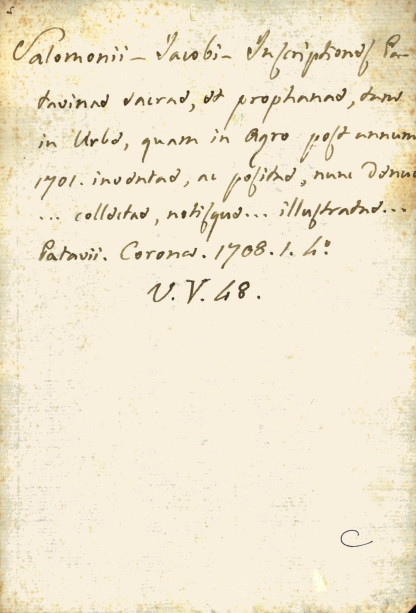 Salomonii - Jacobi - Inscriptiones Pa-
tavinae sacrae, et prophanae, tam
in Urbe, quam in Agro post annum
1701. inventae, ac positae, nunc Denuo
... collectae, notisque... illustratae...
Patavii. Corona. 1708. 1. 4º
V. V. 48.
C